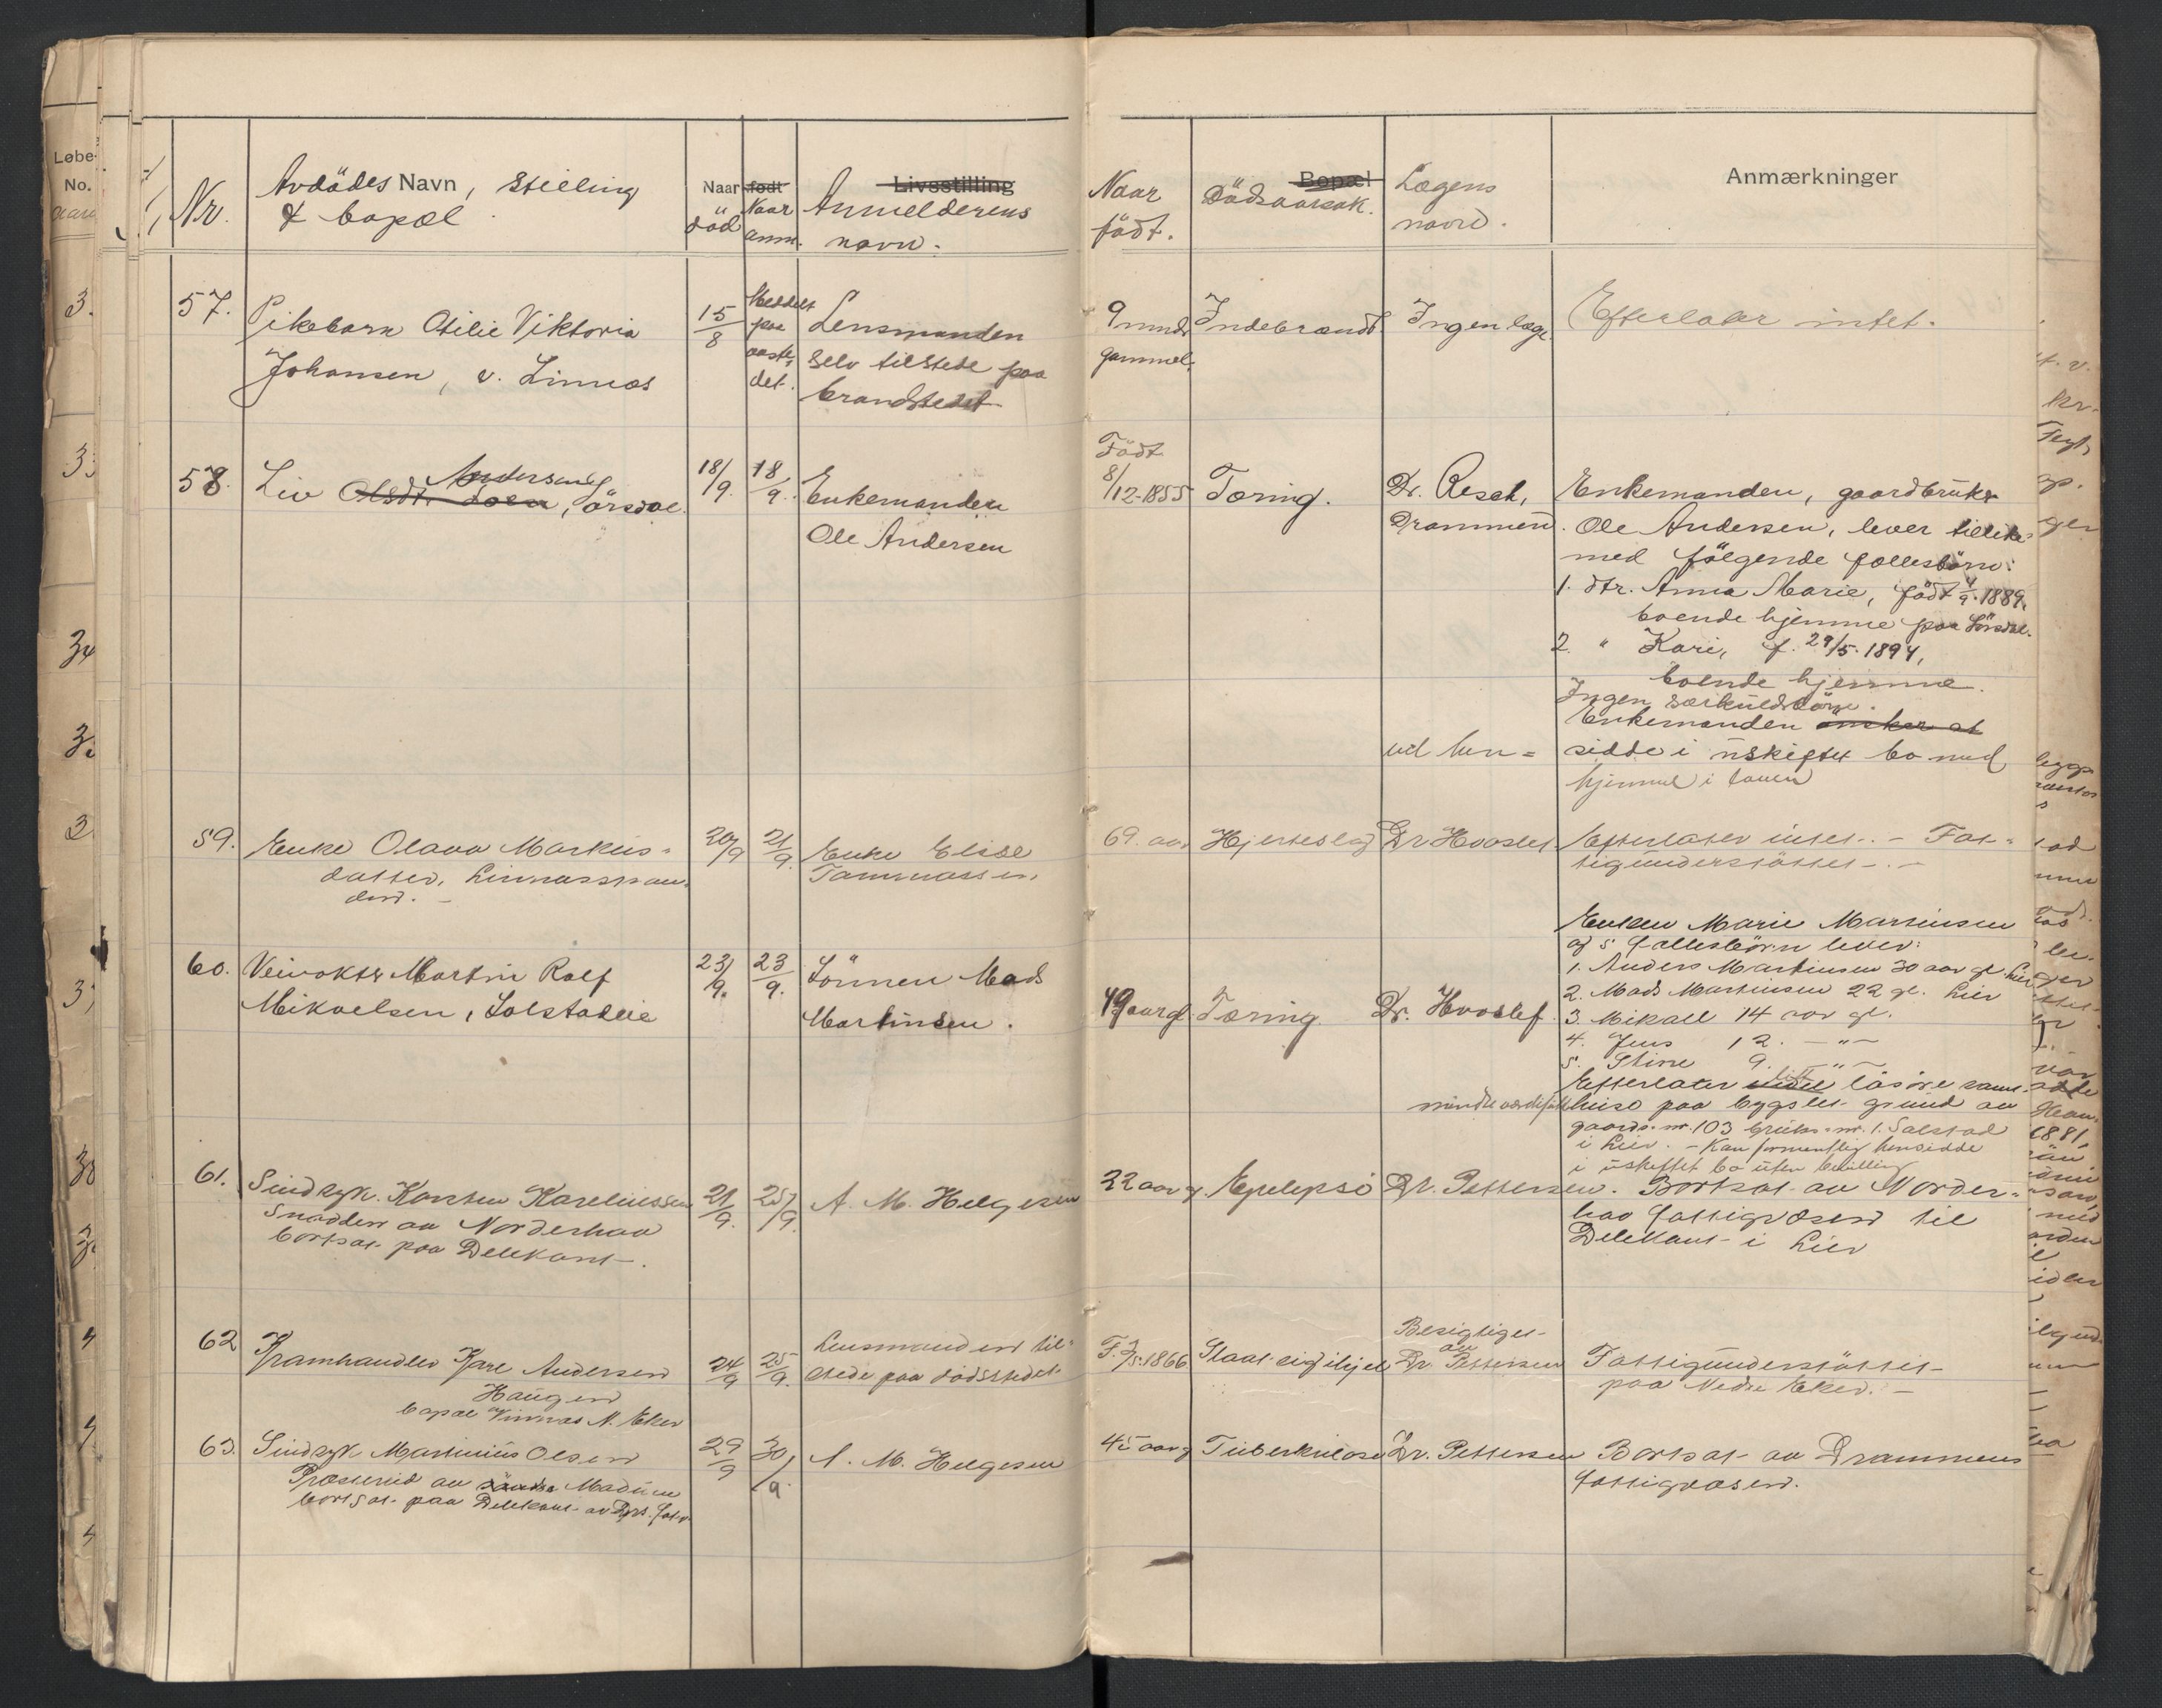 Løbe-
No.
Nr.
Avdödes Navn, stilling
& bopæl
Naar födt
död
Naar
anm.
Livsstilling
Anmelderens
navn.
Naar
födt.
Bopæl
Dödsaarsak.
Lægens
navn.
Anmærkninger
57.
Pikebarn Otilie Viktoria
Johansen, v. Linnæs
15/8
Meddelt
paa
aaste-
det.
Lensmanden
selv tilstede paa
brandstedet
9 mndr
gammel.
Indebrændt
Ingen læge
Efterlater intet.
58.
Liv Olsdtr. Andersen, Sörsdal.
18/9.
18/9.
Enkemanden
Ole Andersen
Födt
8/12-1855
Tæring.
Dr. Resch,
Drammen.
Enkemanden, gaardbruker
Ole Andersen, lever tillike
med fölgende fællesbörn:
1. dtr. Anna Marie, födt 4/9. 1889,
boende hjemme paa Sörsdal.
2. " Kari, f. 29/5. 1894,
boende hjemme.
Ingen særkuldsbörn.
Enkemanden önsker at
sidde i uskiftet bo med
hjemmel i loven
59.
Enke Olava Markus-
datter, Linnæsstran-
den. -
20/9
21/9.
Enke Elise
Tommassen
69. aar
Hjerteslag
Dr Hvoslef
Efterlater intet. - Fat-
tigunderstöttet. -
60.
Veivokter Martin Rolf
Mikaelsen, Solstadeie
23/9.
23/9.
Sönnen Mads
Martinsen.
49 aar gl.
Tæring.
Dr. Hvoslef
Enken Marie Martinsen
og 5 fællesbörn lever:
1. Anders Martinsen 30 aar gl. Lier
2. Mads Martinsen 22 gl. Lier
3. Mikael 14 aar gl.
4. Jens 12. - " -
5. Stine 9. - " -
Efterlater litt lösöre samt
mindre værdifuldt
huse paa bygslet grund av
gaards-nr. 103 bruks-nr. 1. Solstad
i Lier. - Kan formentlig hensidde
i uskiftet bo uten bevilling
61.
Sindsyk. Karsten Kareliussen
Snadden av Norderhov
bortsat paa Delekant.
21/9.
25/9.
A. M. Helgesen
22 aar g.
Epelepsi
Dr. Pettersen.
Bortsat av Norder-
hov fattigvæsen til
Delekant i Lier
62
Kramhandler Kare Andersen
Haugen
bopæl Vinnæs N. Eker
24/9
25/9.
Lensmanden til-
stede paa dödsstedet
F. 3/5. 1866
Slaat sig ihjel
Besigtiget
av
Dr. Pettersen
Fattigunderstöttet
paa Nedre Eker. -
63.
Sindsyk Martinius Olsen
Præsterud av Söndre Modum
bortsat paa Delekant av Drs. fat.v.
29/9
30/9
A. M. Helgesen
45 aar g
Tuberkulose
Dr. Pettersen
Bortsat av Drammens
fattigvæsen.